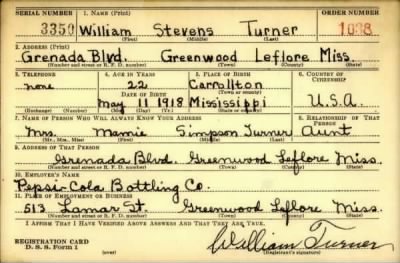 SERIAL NUMBER 1. NAME (Print) ORDER NUMBER
3350 William Stevens Turner
(First) (Middle) (Last)
2. ADDRESS (Print)
Grenada Blvd. Greenwood Leflore Miss.
(Number and street or R. F. D. number) (Town) (County) (State)
3. TELEPHONE 4. AGE IN YEARS 5. PLACE OF BIRTH 6. COUNTRY OF CITIZENSHIP
none 22 Carrollton
DATE OF BIRTH (Town or county)
May 11 1918 Mississippi U.S.A.
(Exchange) (Number) (Mo.) (Day) (Yr.) (State or country)
7. NAME OF PERSON WHO WILL ALWAYS KNOW YOUR ADDRESS 8. RELATIONSHIP OF THAT PERSON
Mrs. Mamie Simpson Turner Aunt
(Mr., Mrs., Miss) (First) (Middle) (Last)
9. ADDRESS OF THAT PERSON
Grenada Blvd. Greenwood Leflore Miss.
(Number and street or R. F. D. number) (Town) (County) (State)
10. EMPLOYER'S NAME
Pepsi-Cola Bottling Co.
11. PLACE OF EMPLOYMENT OR BUSINESS
513 Lamar St. Greenwood Leflore Miss.
(Number and street or R. F. D. number) (Town) (County) (State)
I AFFIRM THAT I HAVE VERIFIED ABOVE ANSWERS AND THAT THEY ARE TRUE.
REGISTRATION CARD
D. S. S. Form 1 William Turner
(Registrant's signature)